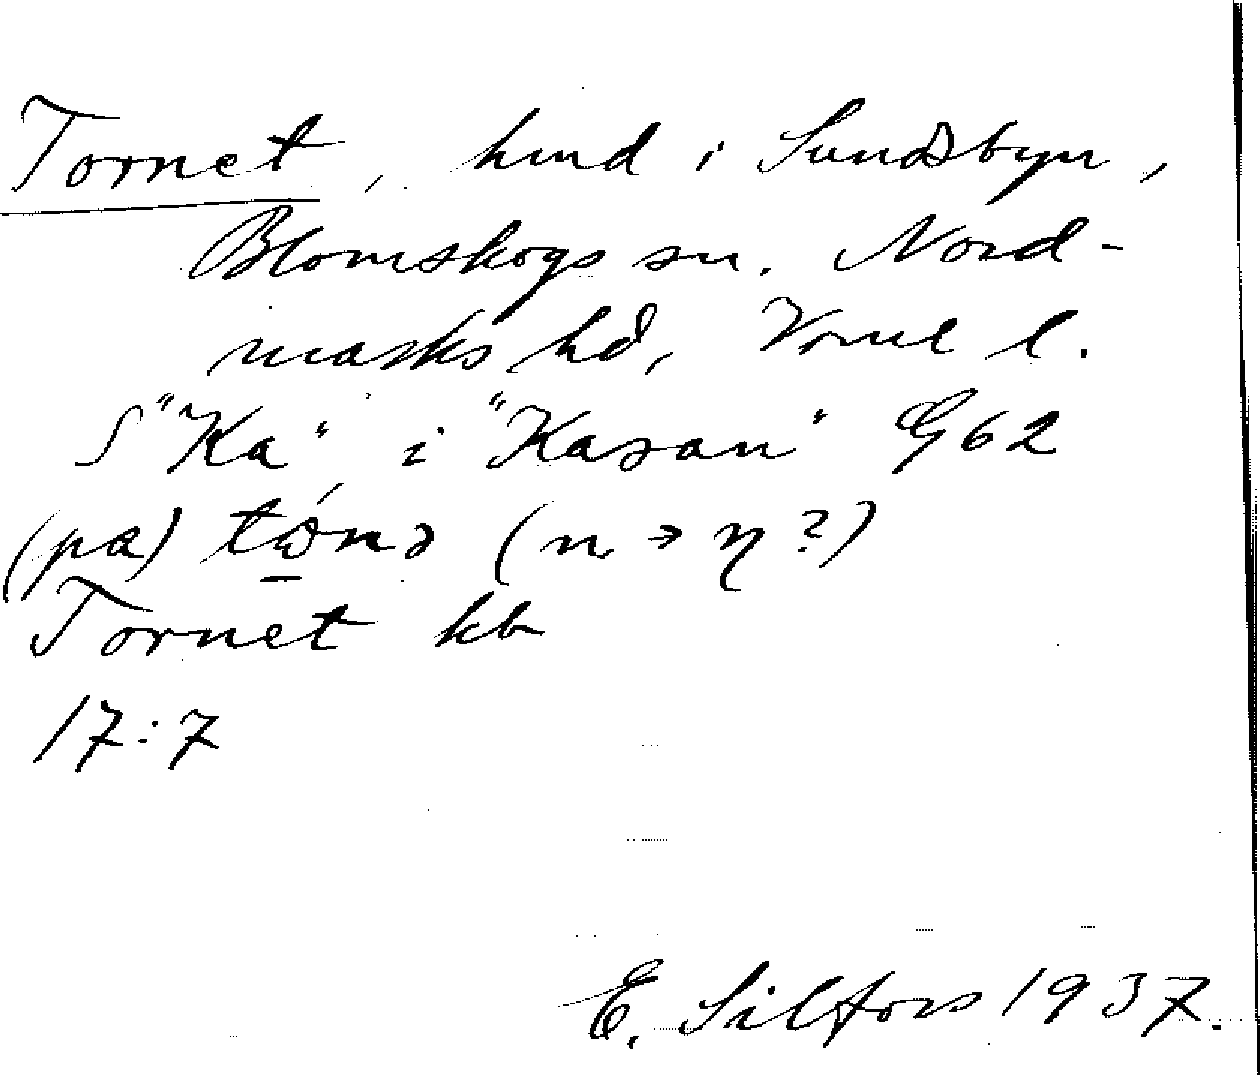 Tornet, hmd i Sundsbyn,
Blomskogs sn. Nord-
marks hd, Vrml l.
S "Ka" i "Kasan" G62
(på) (n → η?)
Tornet kb
17:7
E. Silfors 1937.